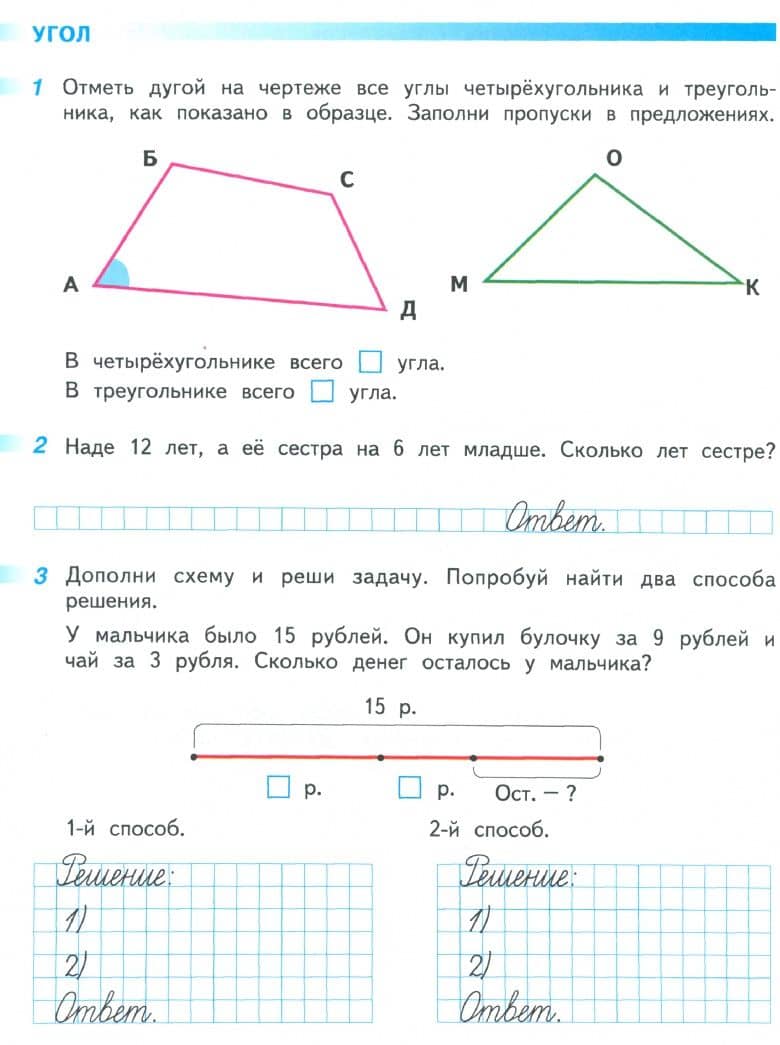 УГОЛ
1 Отметь дугой на чертеже все углы четырёхугольника и треуголь-
ника, как показано в образце. Заполни пропуски в предложениях.
Б
С
О
А
Д
М
К
В четырёхугольнике всего угла.
В треугольнике всего угла.
2 Наде 12 лет, а её сестра на 6 лет младше. Сколько лет сестре?
Ответ.
3 Дополни схему и реши задачу. Попробуй найти два способа
решения.
У мальчика было 15 рублей. Он купил булочку за 9 рублей и
чай за 3 рубля. Сколько денег осталось у мальчика?
15 р.
р. р. Ост. – ?
1-й способ. 2-й способ.
Решение: Решение:
1) 1)
2) 2)
Ответ. Ответ.